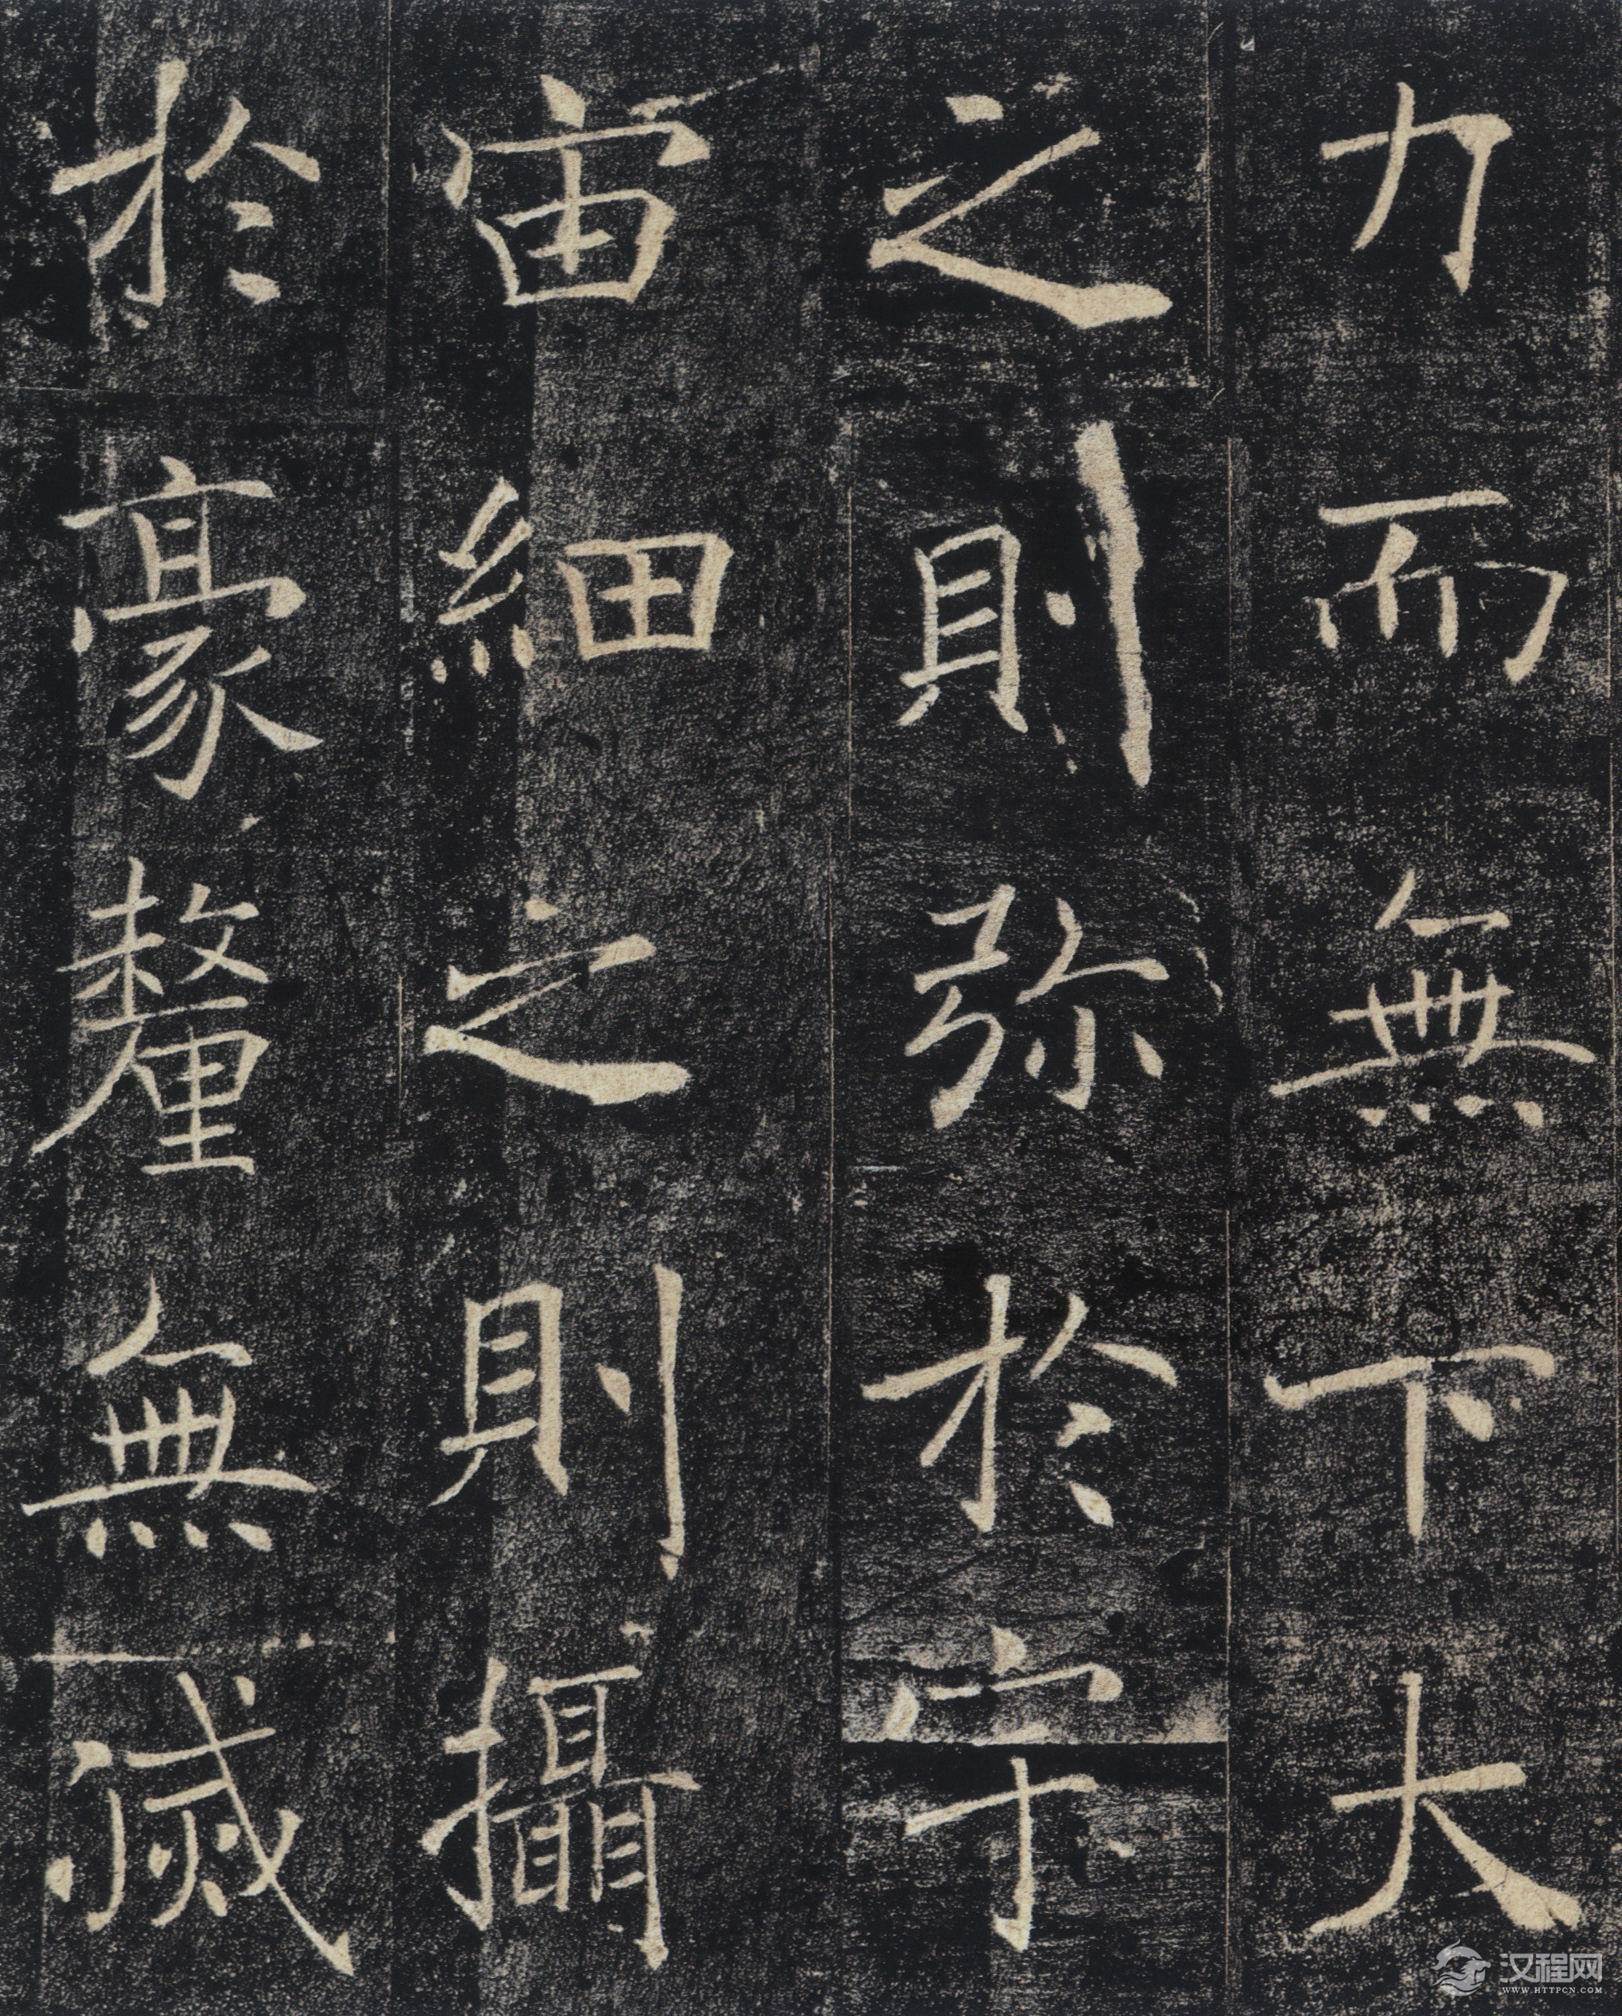 力而無下大
之則弥於宇
宙細之則攝
於豪釐無滅
汉程网
WWW.HTTPCN.COM